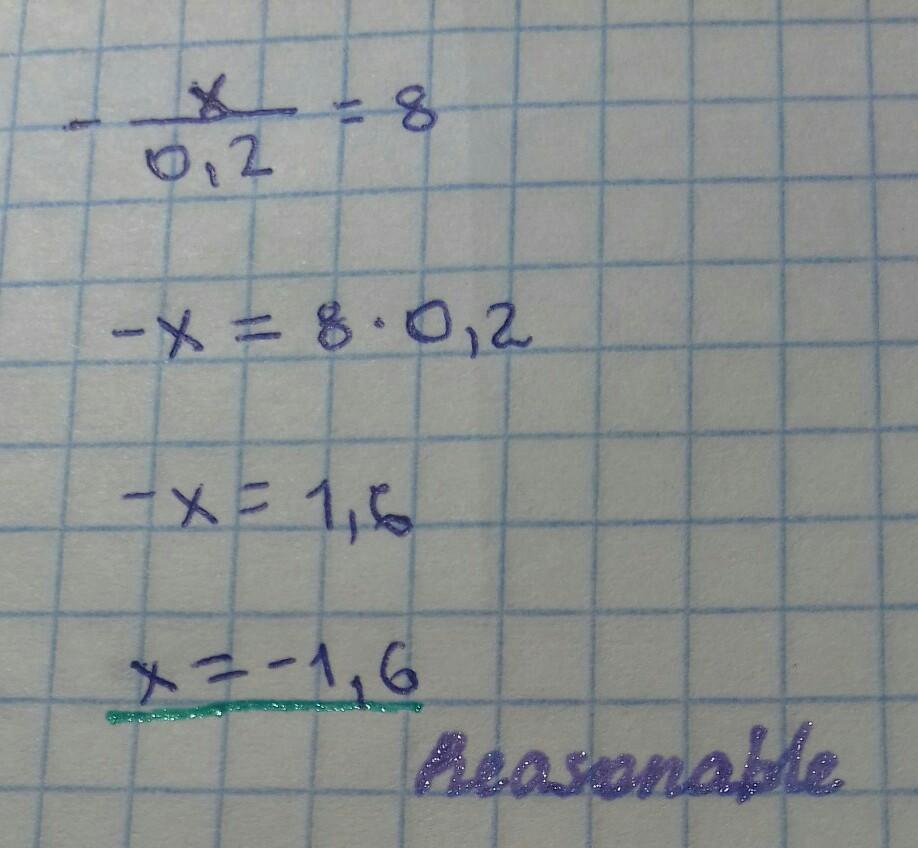 - x/0,2 = 8
-x = 8·0,2
-x = 1,6
x = -1,6
Reasonable